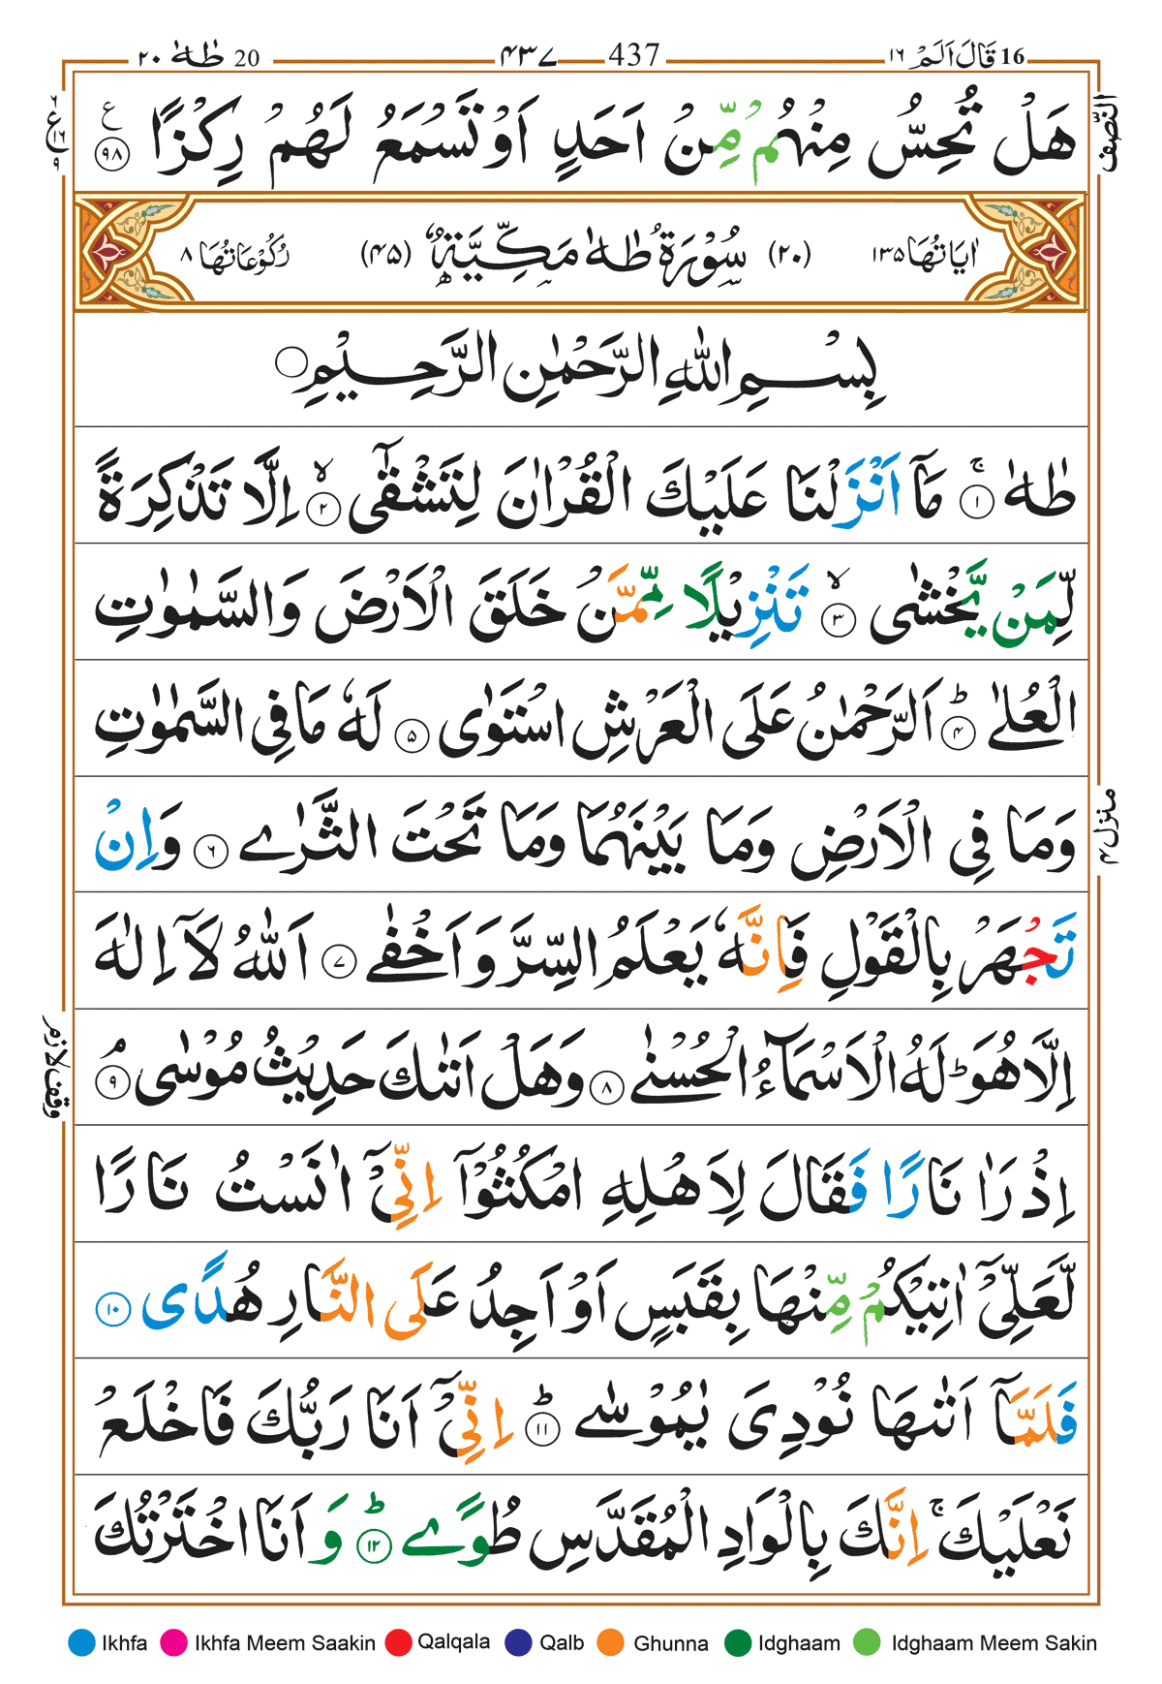 16 قَالَ اَلَمْ ١٦ 437 ۴۳۷ 20 طٰهٰ ۲۰
النّصف
هَلْ تُحِسُّ مِنْهُمْ مِّنْ اَحَدٍ اَوْ تَسْمَعُ لَهُمْ رِكْزًا ۹۸ ع
اٰيَاتُهَا ۱۳۵ (۲۰) سُوْرَةُ طٰهٰ مَكِّيَّةٌ (۴۵) رُكُوْعَاتُهَا ۸
بِسْمِ اللّٰهِ الرَّحْمٰنِ الرَّحِيْمِ
طٰهٰ ۚ ۱ مَاۤ اَنْزَلْنَا عَلَيْكَ الْقُرْاٰنَ لِتَشْقٰٓى ۙ ۲ اِلَّا تَذْكِرَةً
لِّمَنْ يَّخْشٰى ۙ ۳ تَنْزِيْلًا مِّمَّنْ خَلَقَ الْاَرْضَ وَالسَّمٰوٰتِ
الْعُلٰے ؕ ۴ اَلرَّحْمٰنُ عَلَى الْعَرْشِ اسْتَوٰى ۵ لَهٗ مَا فِى السَّمٰوٰتِ
وَمَا فِى الْاَرْضِ وَمَا بَيْنَهُمَا وَمَا تَحْتَ الثَّرٰے ۶ وَاِنْ
منزل ۴
تَجْهَرْ بِالْقَوْلِ فَاِنَّهٗ يَعْلَمُ السِّرَّ وَاَخْفٰے ۷ اَللّٰهُ لَاۤ اِلٰهَ
اِلَّا هُوَ ؕ لَهُ الْاَسْمَآءُ الْحُسْنٰے ۸ وَهَلْ اَتٰىكَ حَدِيْثُ مُوْسٰى ۘ ۹
وقف لازم
اِذْ رَاٰ نَارًا فَقَالَ لِاَهْلِهِ امْكُثُوْۤا اِنِّيْۤ اٰنَسْتُ نَارًا
لَّعَلِّيْۤ اٰتِيْكُمْ مِّنْهَا بِقَبَسٍ اَوْ اَجِدُ عَلَى النَّارِ هُدًى ۱۰
فَلَمَّاۤ اَتٰىهَا نُوْدِىَ يٰمُوْسٰے ؕ ۱۱ اِنِّيْۤ اَنَا رَبُّكَ فَاخْلَعْ
نَعْلَيْكَ ۚ اِنَّكَ بِالْوَادِ الْمُقَدَّسِ طُوًے ؕ ۱۲ وَ اَنَا اخْتَرْتُكَ
Ikhfa Ikhfa Meem Saakin Qalqala Qalb Ghunna Idghaam Idghaam Meem Sakin